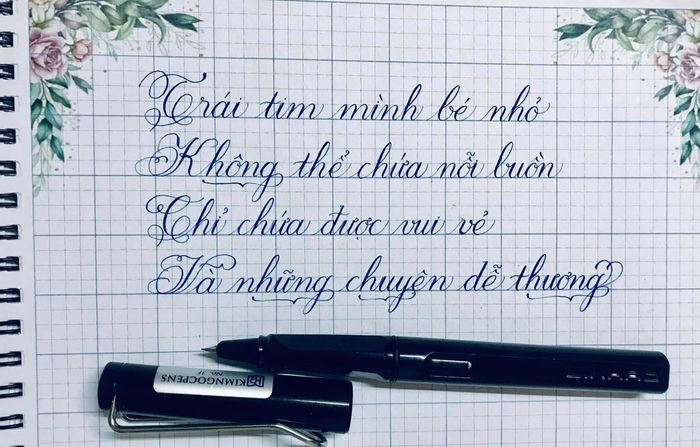 Trái tim mình bé nhỏ
Không thể chứa nỗi buồn
Chỉ chứa được vui vẻ
Và những chuyện dễ thương
KIMNGOCPENS
No. 1F